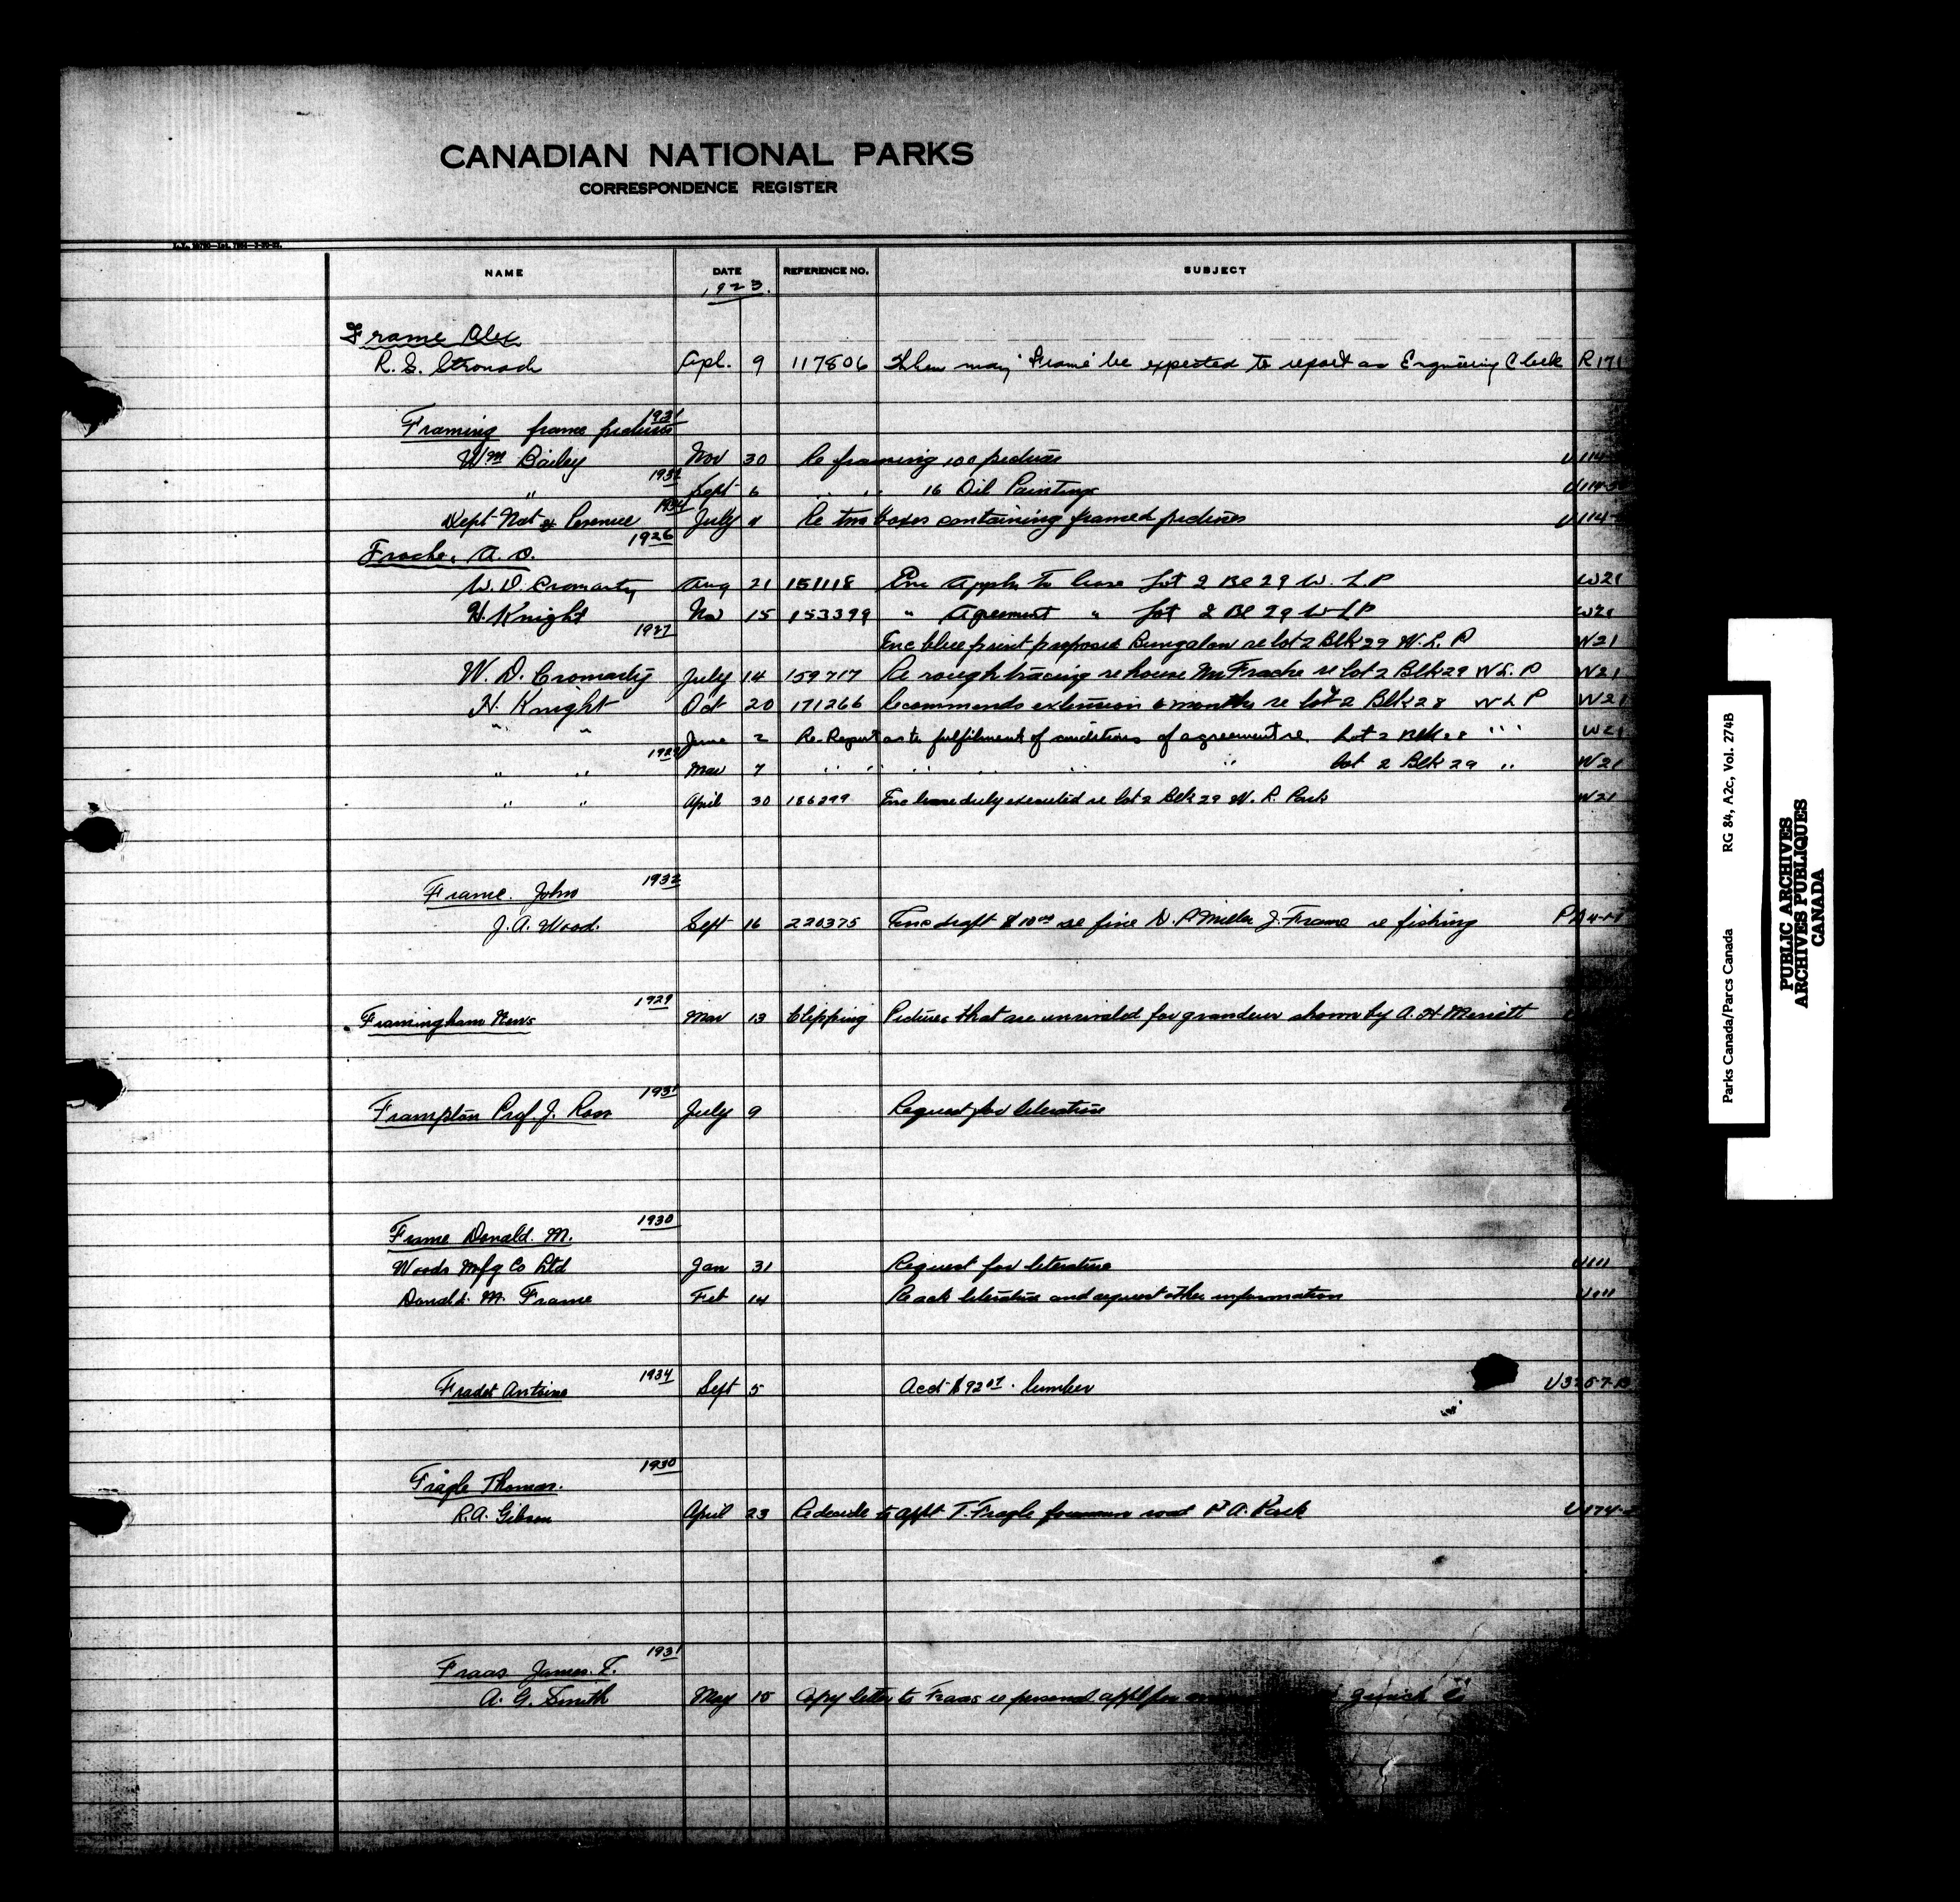 CANADIAN NATIONAL PARKS
CORRESPONDENCE REGISTER
NAME DATE REFERENCE NO. SUBJECT
1923.
Frame Alex
R. S. Stronach Apl. 9 117806 When may Frame be expected to report as Engineering Clerk R171
Framing frame pictures 1931
Wm Bailey Nov 30 Re framing 100 pictures U114
" 1932 Sept 6 " " 16 Oil Paintings U114
Dept Nat 1934 July Re two boxes containing framed pictures U114
Frache. A. O. 1926
W. D. Cromarty Aug 21 151118 Enc Appln to lease Lot 2 Bl 29 W. L. P W21
H. Knight Nov 15 153399 " Agreement " Lot 2 Bl 29 W L P W21
1927 Enc blue print proposed Bungalow re lot 2 Blk 29 W. L. P W21
W. D. Cromarty July 14 159717 Re rough tracing re house Mr Frache re lot 2 Blk 29 W L. P W21
H. Knight Oct 20 171266 Recommends extension 6 months re lot 2 Blk 28 W L P W21
" " June 2 Re-Report as to fulfilment of conditions of agreement re. Lot 2 Blk 28 " " " W21
" " Mar 7 " " " " " " lot 2 Blk 29 " W21
" " April 30 186299 Enc lease duly executed re lot 2 Blk 29 W. L. Park W21
Frame. John 1932
J. A. Wood. Sept 16 220375 Enc draft $10.00 re fine D. P. Miller J. Frame re fishing
Framingham News 1929 Mar 13 Clipping Pictures that are unrivaled for grandeur shown by A. H. Merritt
Frampton Prof. J. Ross 1931 July 9 Request for literature
Frame Donald. M. 1930
Woods Mfg Co Ltd Jan 31 Request for literature U111
Donald. M. Frame Feb 14 Re ack literature and request other information U111
Fradet Antoine 1934 Sept 5 Acct $92 lumber
Fragle Thomas. 1930
R. A. Gibson April 23 Re decide to appt T. Fragle foreman road P. A. Park U174-2
Fraas James. T. 1931
A. G. Smith May 15 Copy letter to Fraas re personal appl for
Parks Canada/Parcs Canada RG 84, A2c, Vol. 274B
PUBLIC ARCHIVES
ARCHIVES PUBLIQUES
CANADA